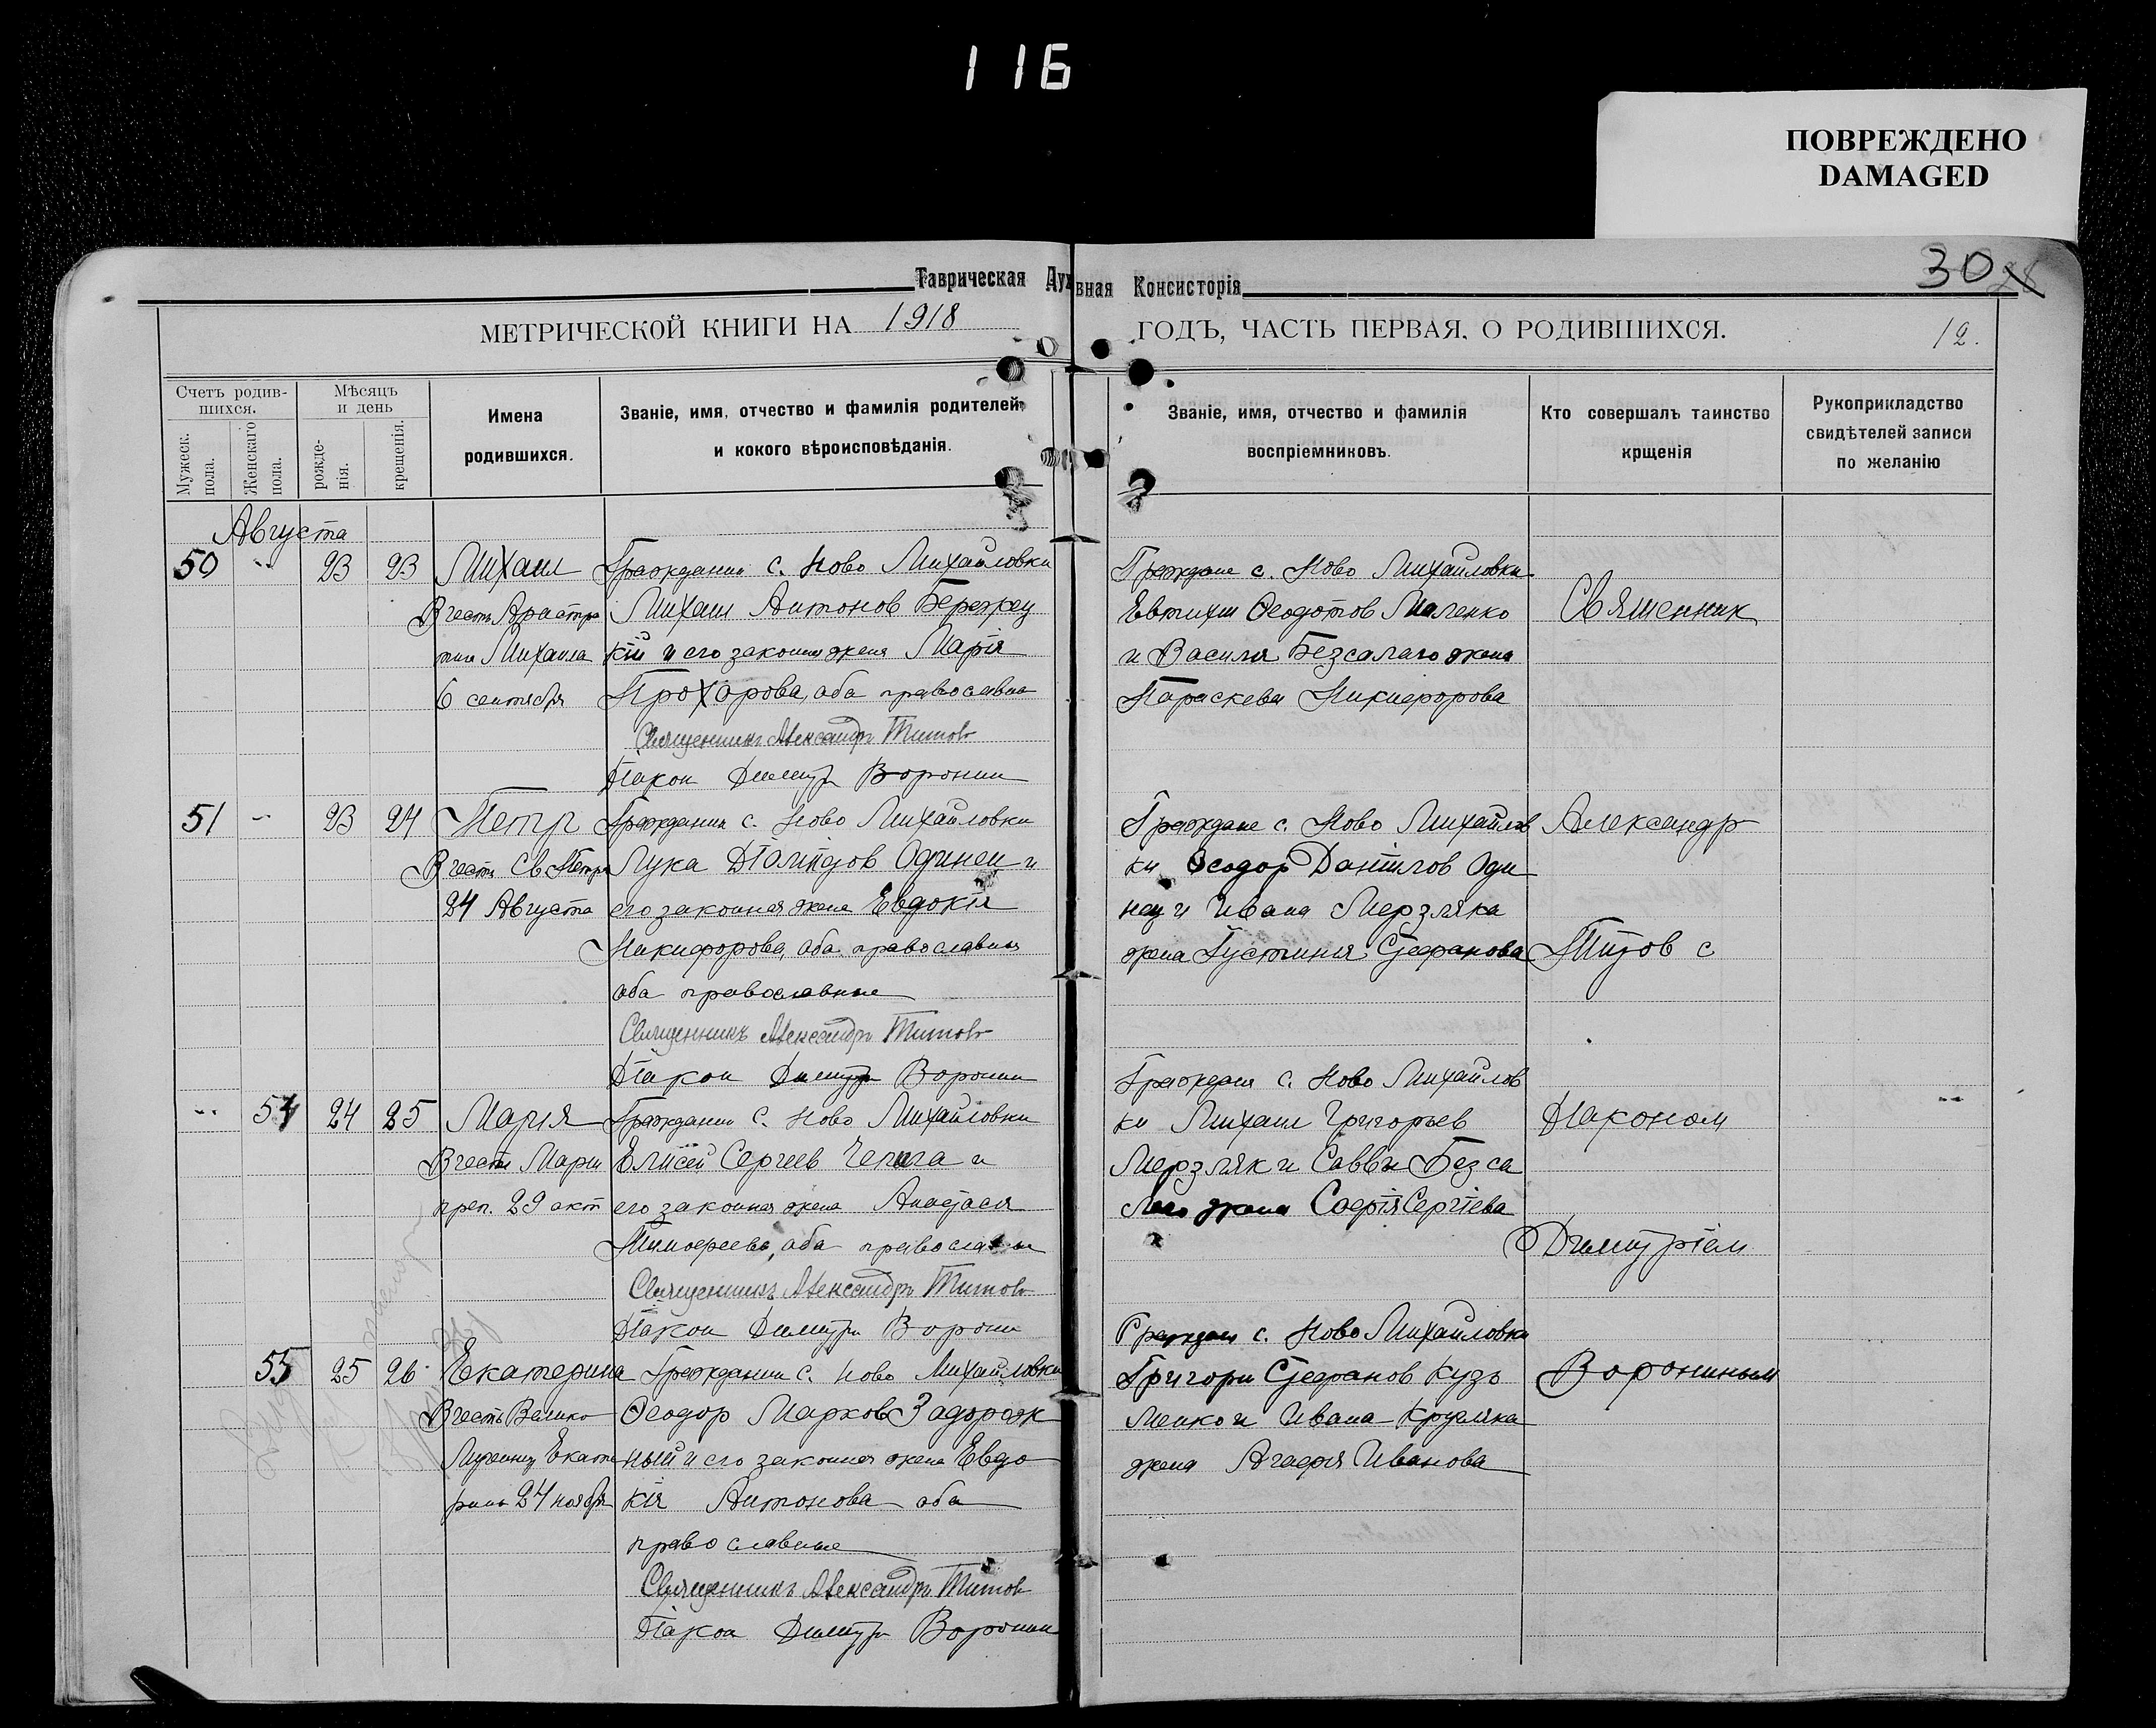 116
ПОВРЕЖДЕНО
DAMAGED
Таврическая Духовная Консисторія
30
28
МЕТРИЧЕСКОЙ КНИГИ НА 1918 ГОДЪ, ЧАСТЬ ПЕРВАЯ, О РОДИВШИХСЯ.
12.
Счетъ родив-
шихся.
Мужеск.
пола.
Женскаго
пола.
Мѣсяцъ
и день
рожде-
нія.
крещенія.
Имена
родившихся.
Званіе, имя, отчество и фамилія родителей
и кокого вѣроисповѣданія.
Званіе, имя, отчество и фамилія
воспріемниковъ.
Кто совершалъ таинство
крщенія
Рукоприкладство
свидѣтелей записи
по желанію
Августа
50 23 23 Михаил
В честь
Михаила
6 сентября
Гражданин с. Ново Михайловки
Михаил Антонов Бережец
кій и его законная жена Марія
Прохорова, оба православные
Священникъ Александръ Титовъ
Діакон Димитр Воронин
Граждане с. Ново Михайловки
Евтихии Ѳеодотов Маленко
и Василия Безсалаго жена
Параскева Никифорова
51 23 24 Петр
В честь Св Петра
24 Августа
Гражданин с. Ново Михайловки
Лука Одинец и
его законная жена Евдокія
Никифорова, оба православные
оба православные
Священникъ Александръ Титовъ
Діакон Димитр Воронин
Граждане с. Ново Михайлов
ки Ѳеодор Даніилов Оди
нец и Ивана Мерзляка
жена Густиния Стефанова
54 24 25 Марія
В честь Марии
преп. 29 окт
Гражданин с. Ново Михайловки
Елисей Сергеев Чепига и
его законная жена Анастасія
Тимофеева, оба православные
Священникъ Александръ Титовъ
Діакон Димитр Воронин
Граждане с. Ново Михайлов
ки Михаил Григорьев
Мерзляк и Саввы Безса
лаго жена Софія Сергіева
55 25 26 Екатерина
В честь Велико
Мученицы Екате
рины 24 ноября
Гражданин с. Ново Михайловки
Ѳеодор Марков Задорож
ный и его законная жена Евдо
кія Антонова оба
православные
Священникъ Александръ Титов
Діакон Димитр Воронин
Граждане с. Ново Михайловки
Григори Стефанов Кузь
менко и Ивана Кругляка
жена Агафія Иванова
Священник
Александр
Титов с
Діаконом
Димитріем
Ворониным